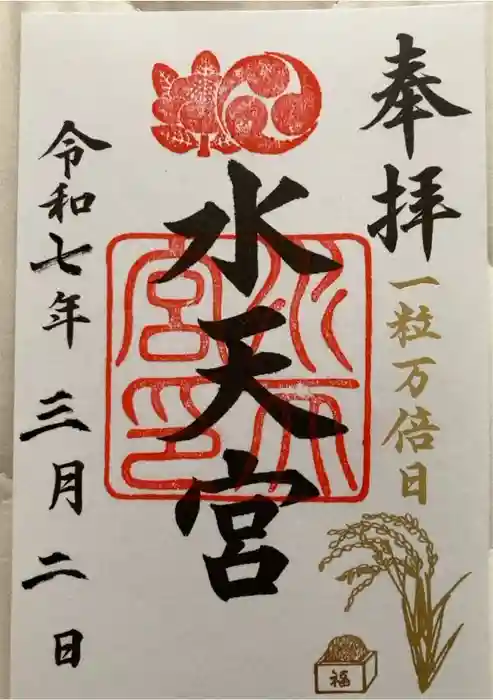 奉拝
一粒万倍日
福
水天宮
水天宮印
令和七年三月二日